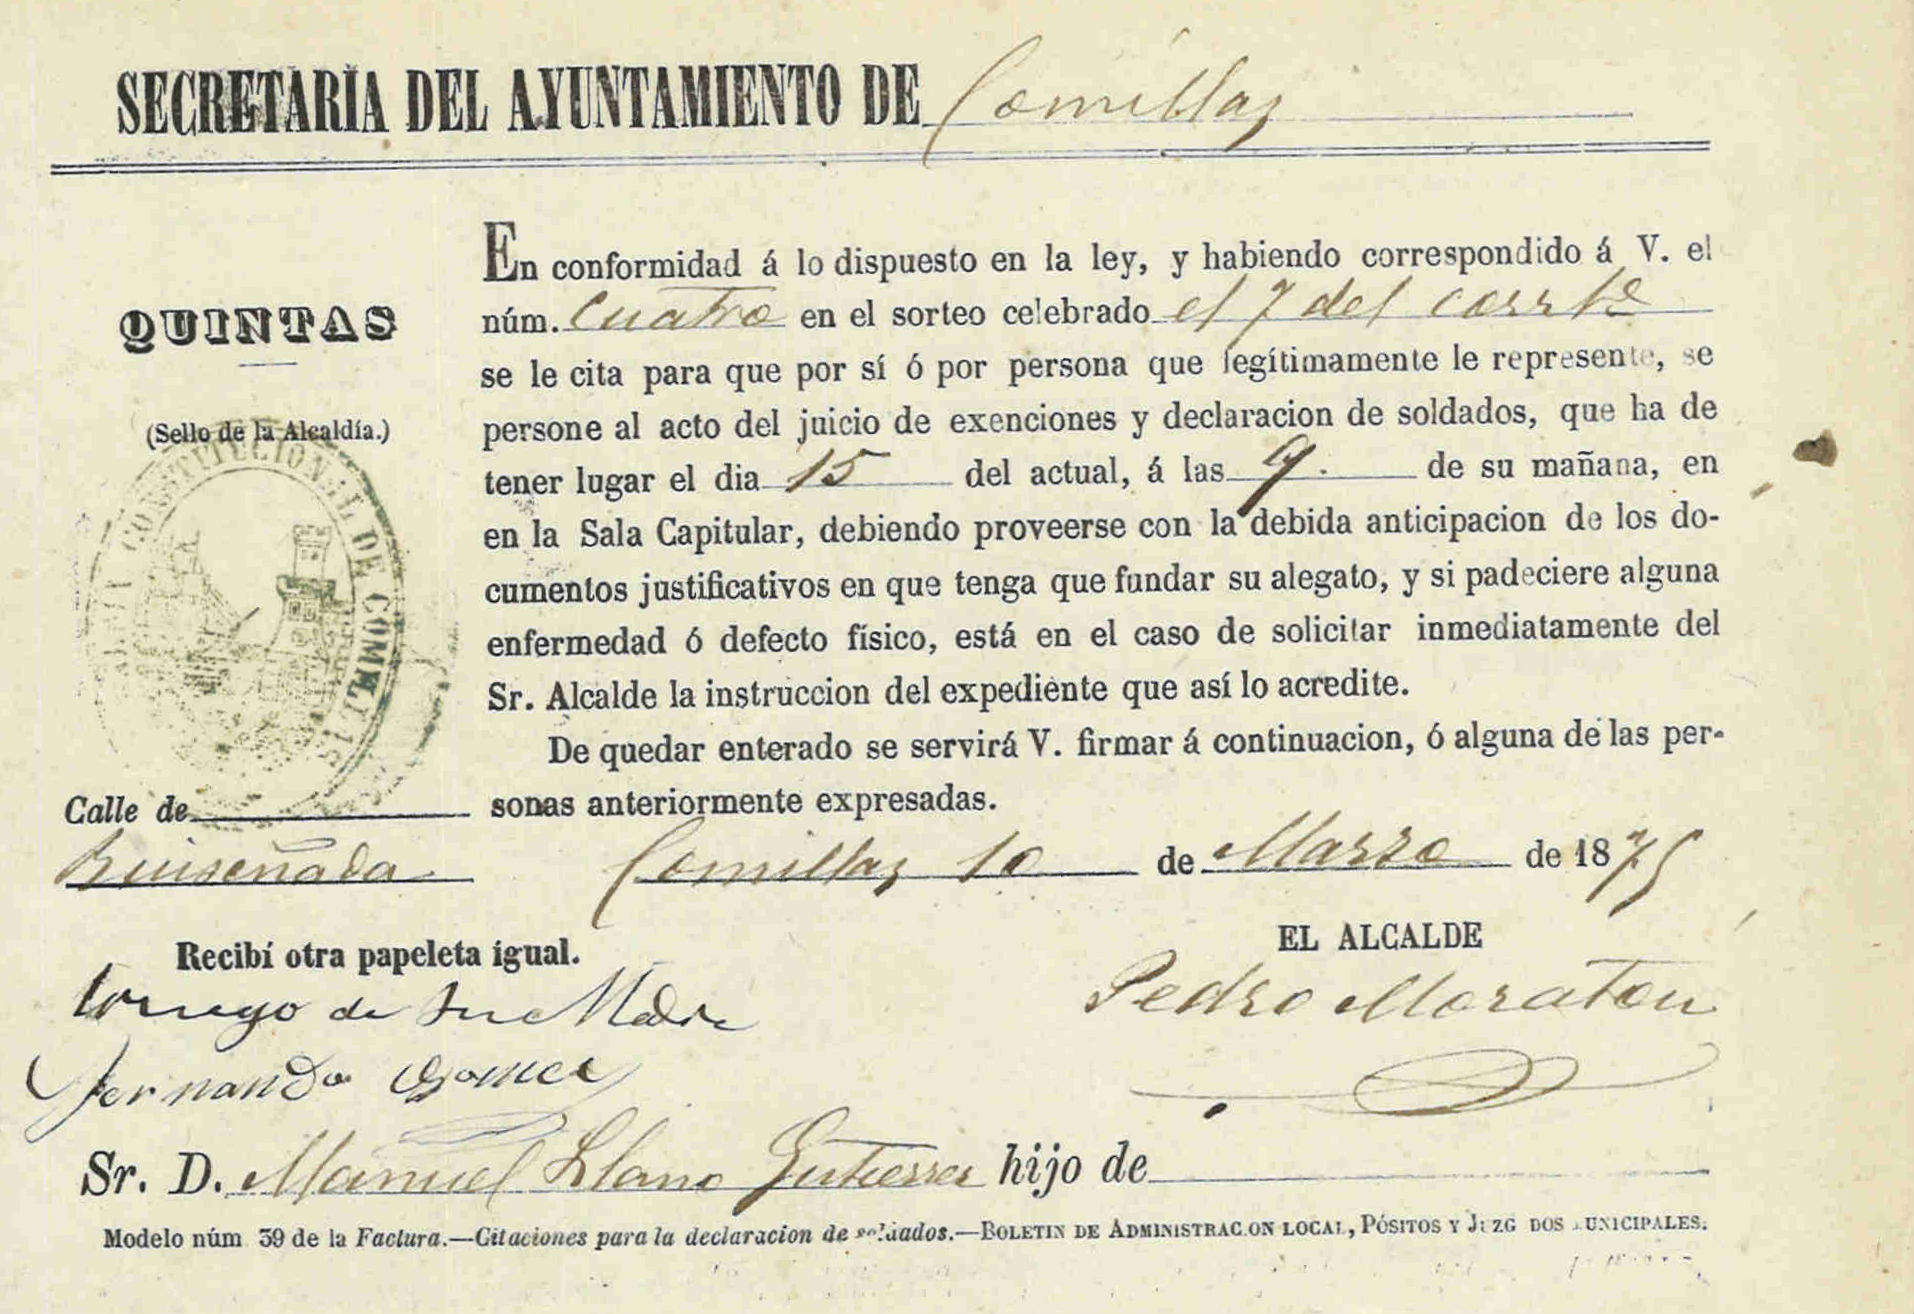 SECRETARÍA DEL AYUNTAMIENTO DE Comillas
QUINTAS
(Sello de la Alcaldía.)
CONSTITUCIONAL DE COMILLAS
En conformidad á lo dispuesto en la ley, y habiendo correspondido á V. el
núm. Cuatro en el sorteo celebrado el 7 del corrte
se le cita para que por sí ó por persona que legítimamente le represente, se
persone al acto del juicio de exenciones y declaracion de soldados, que ha de
tener lugar el dia 15 del actual, á las 9. de su mañana, en
en la Sala Capitular, debiendo proveerse con la debida anticipacion de los do-
cumentos justificativos en que tenga que fundar su alegato, y si padeciere alguna
enfermedad ó defecto físico, está en el caso de solicitar inmediatamente del
Sr. Alcalde la instruccion del expediente que así lo acredite.
De quedar enterado se servirá V. firmar á continuacion, ó alguna de las per-
sonas anteriormente expresadas.
Calle de
Ruiseñada
Comillas 10 de Marzo de 1875
Recibí otra papeleta igual.
de su Madre
Fernando Gomez
EL ALCALDE
Pedro Moraton
Sr. D. Manuel Llano Gutierrez hijo de
Modelo núm 39 de la Factura.—Citaciones para la declaracion de soldados.—BOLETIN DE ADMINISTRACION LOCAL, PÓSITOS Y JUZGADOS MUNICIPALES.